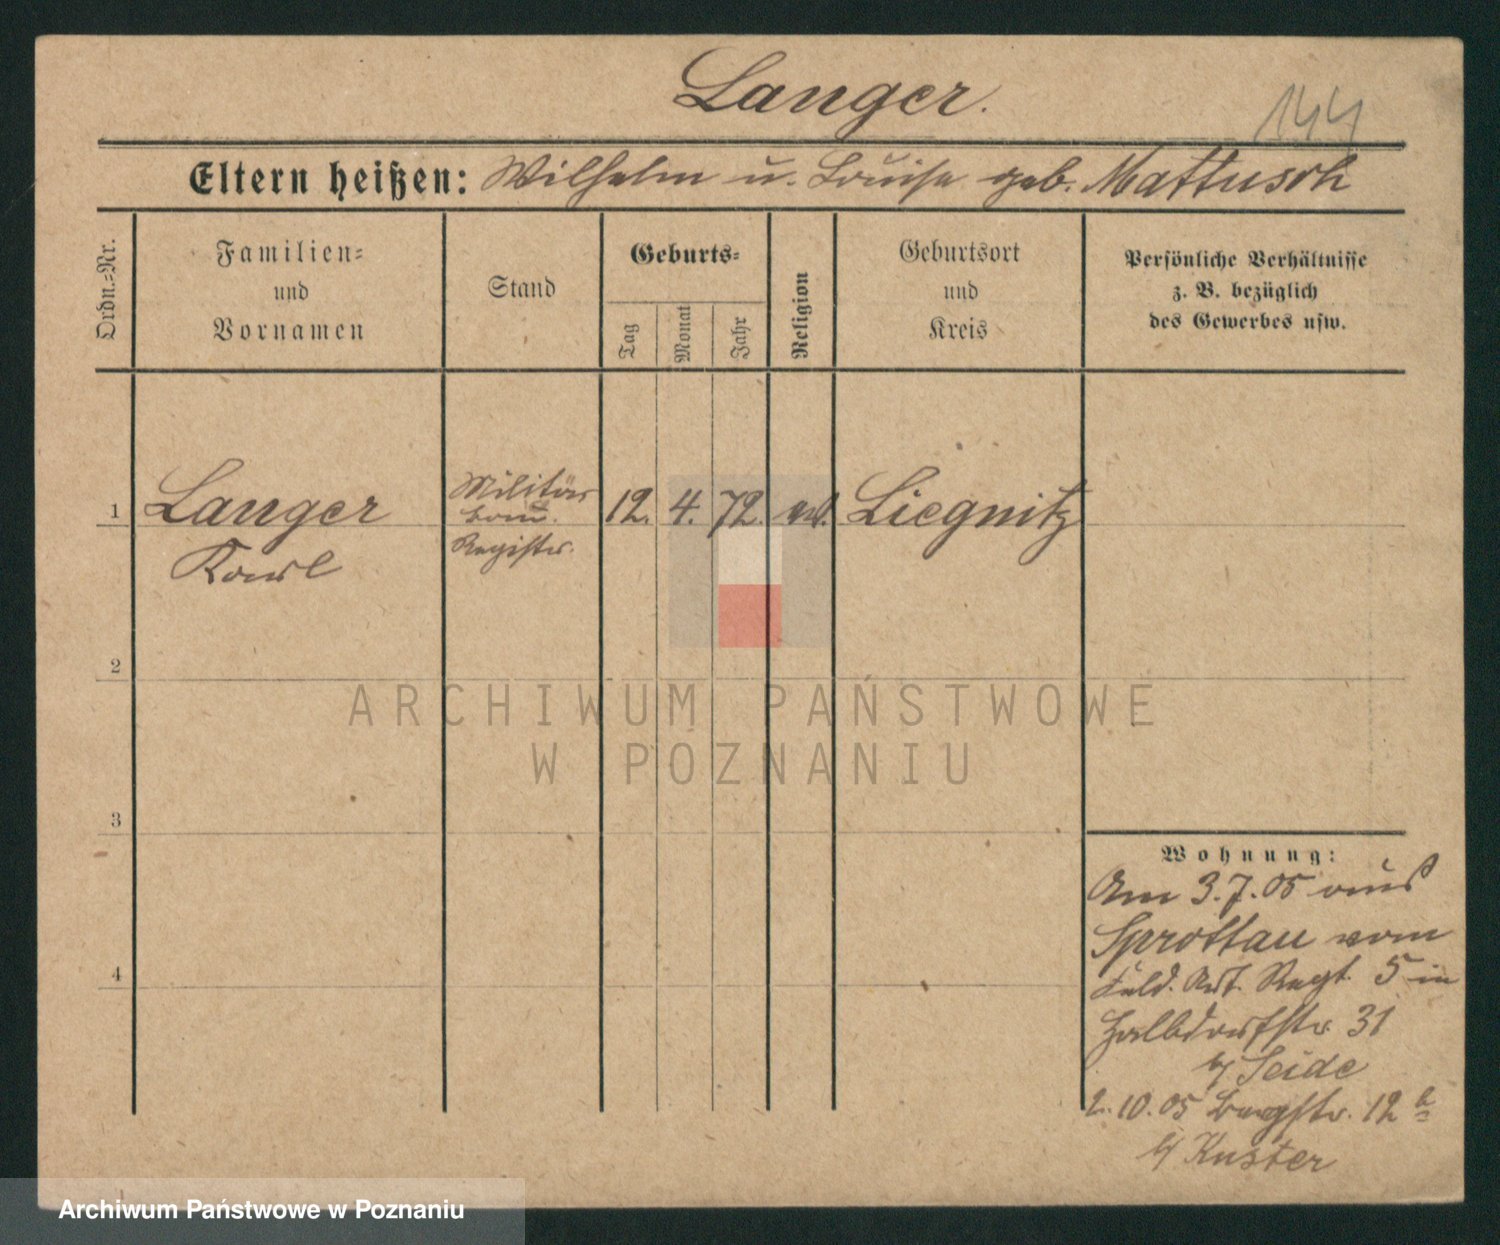 Langer.
144
Eltern heißen: Wilhelm u. Louise geb. Mattusch
Ordn.=Nr.
Familien=
und
Vornamen
Stand
Geburts=
Tag
Monat
Jahr
Religion
Geburtsort
und
Kreis
Persönliche Verhältnisse
z. B. bezüglich
des Gewerbes usw.
1
Langer
Karl
Militär
Register.
12.
4.
72.
Liegnitz
2
3
4
Wohnung:
Am 3.7.05 aus
Sprottau vom
Feld. Art. Regt. 5 in
Halbdorfstr. 31
b/ Seide
2.10.05 Bergstr. 12 b
b/ Kuster
ARCHIWUM PAŃSTWOWE
W POZNANIU
Archiwum Państwowe w Poznaniu